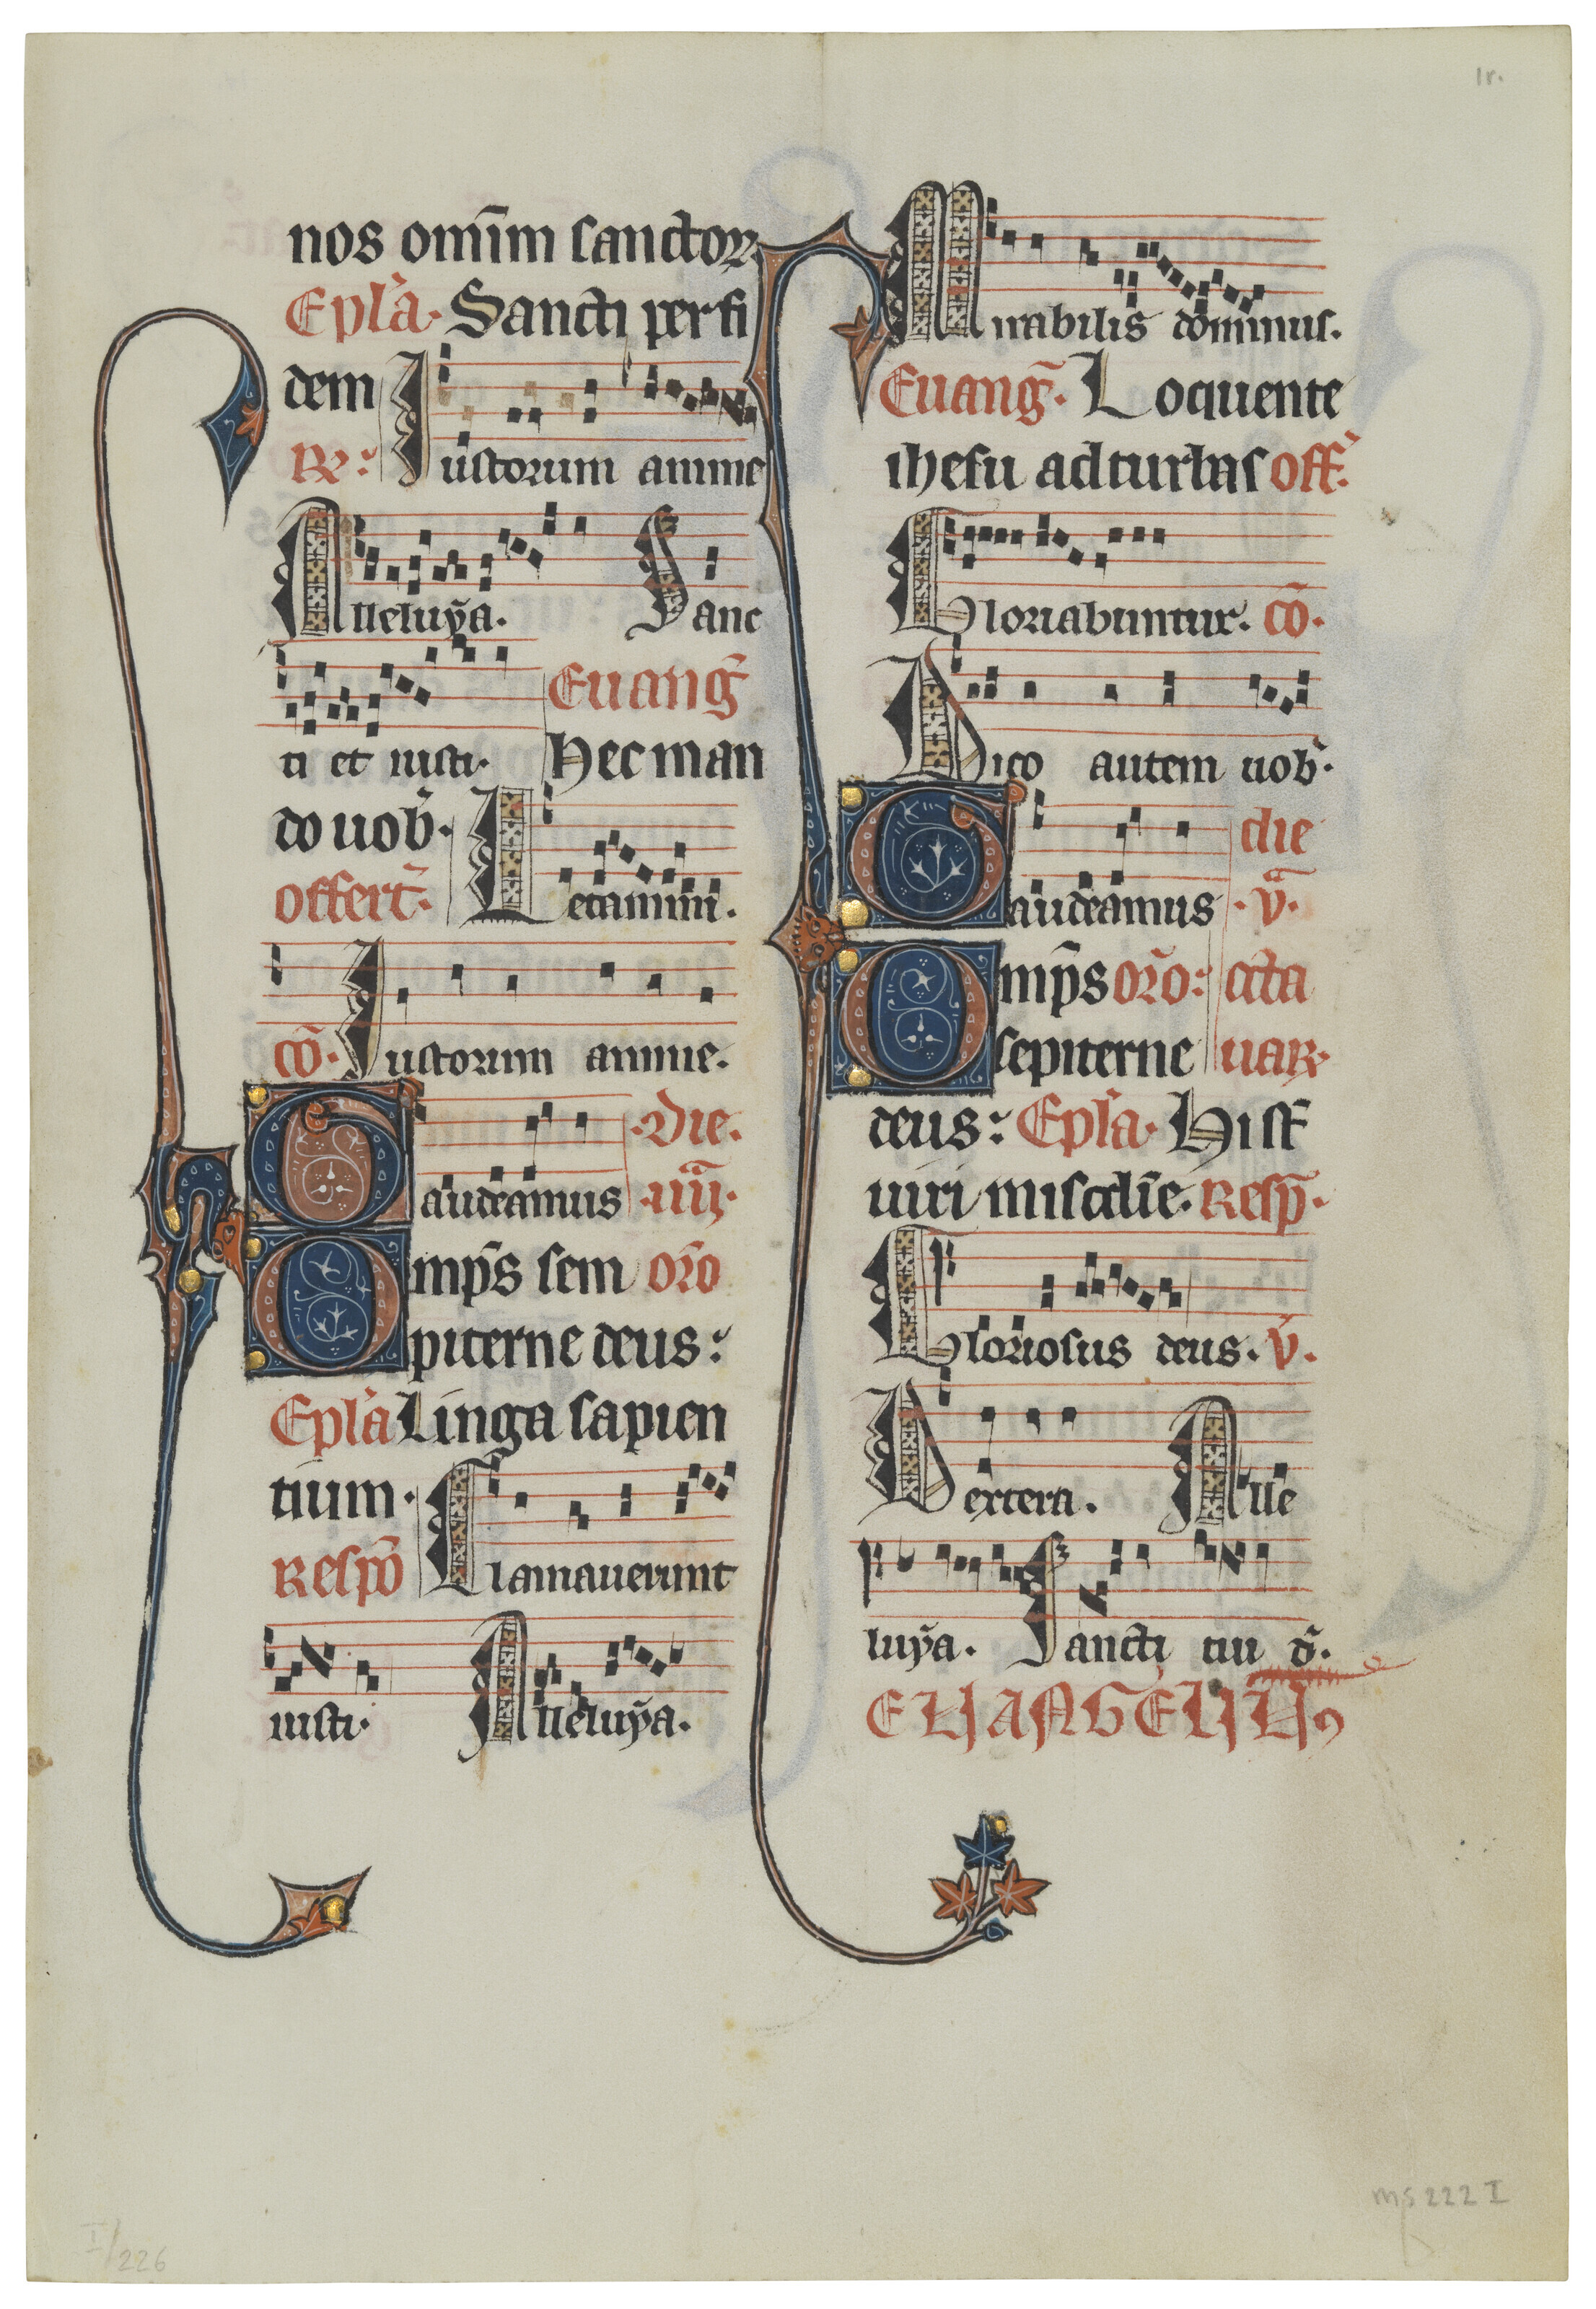 1r.
nos om̄īm sanctoꝝ
Epl̄a. Sancti per fi
dem
R̷: Iustorum anime
Alleluya. Sanc
ti et iusti. Euang̃
Hec man
do uob̃.
offert̃. Letamini.
cō. Iustorum anime.
Gaudeamus .die. .iiij.
Omp̄s sem orō
piterne deus:
Epl̄a Linga sapien
tium.
Respō Clamauerunt
iusti. Alleluya.
Mirabilis dominus.
Euang̃. Loquente
ihesu ad turbas off̃.
Gloriabuntur. cō.
Dico autem uob̃.
Gaudeamus die .v̄.
Omp̄s orō: octa
sepiterne uaꝝ.
deus: Epl̄a. Hi st̄
uiri misc̄dīe. Resp̄.
Gloriosus deus. v̄.
Dextera. Alle
luya. Sancti tui d̃.
EUANGELIUꝯ
ms 222 I
I/226